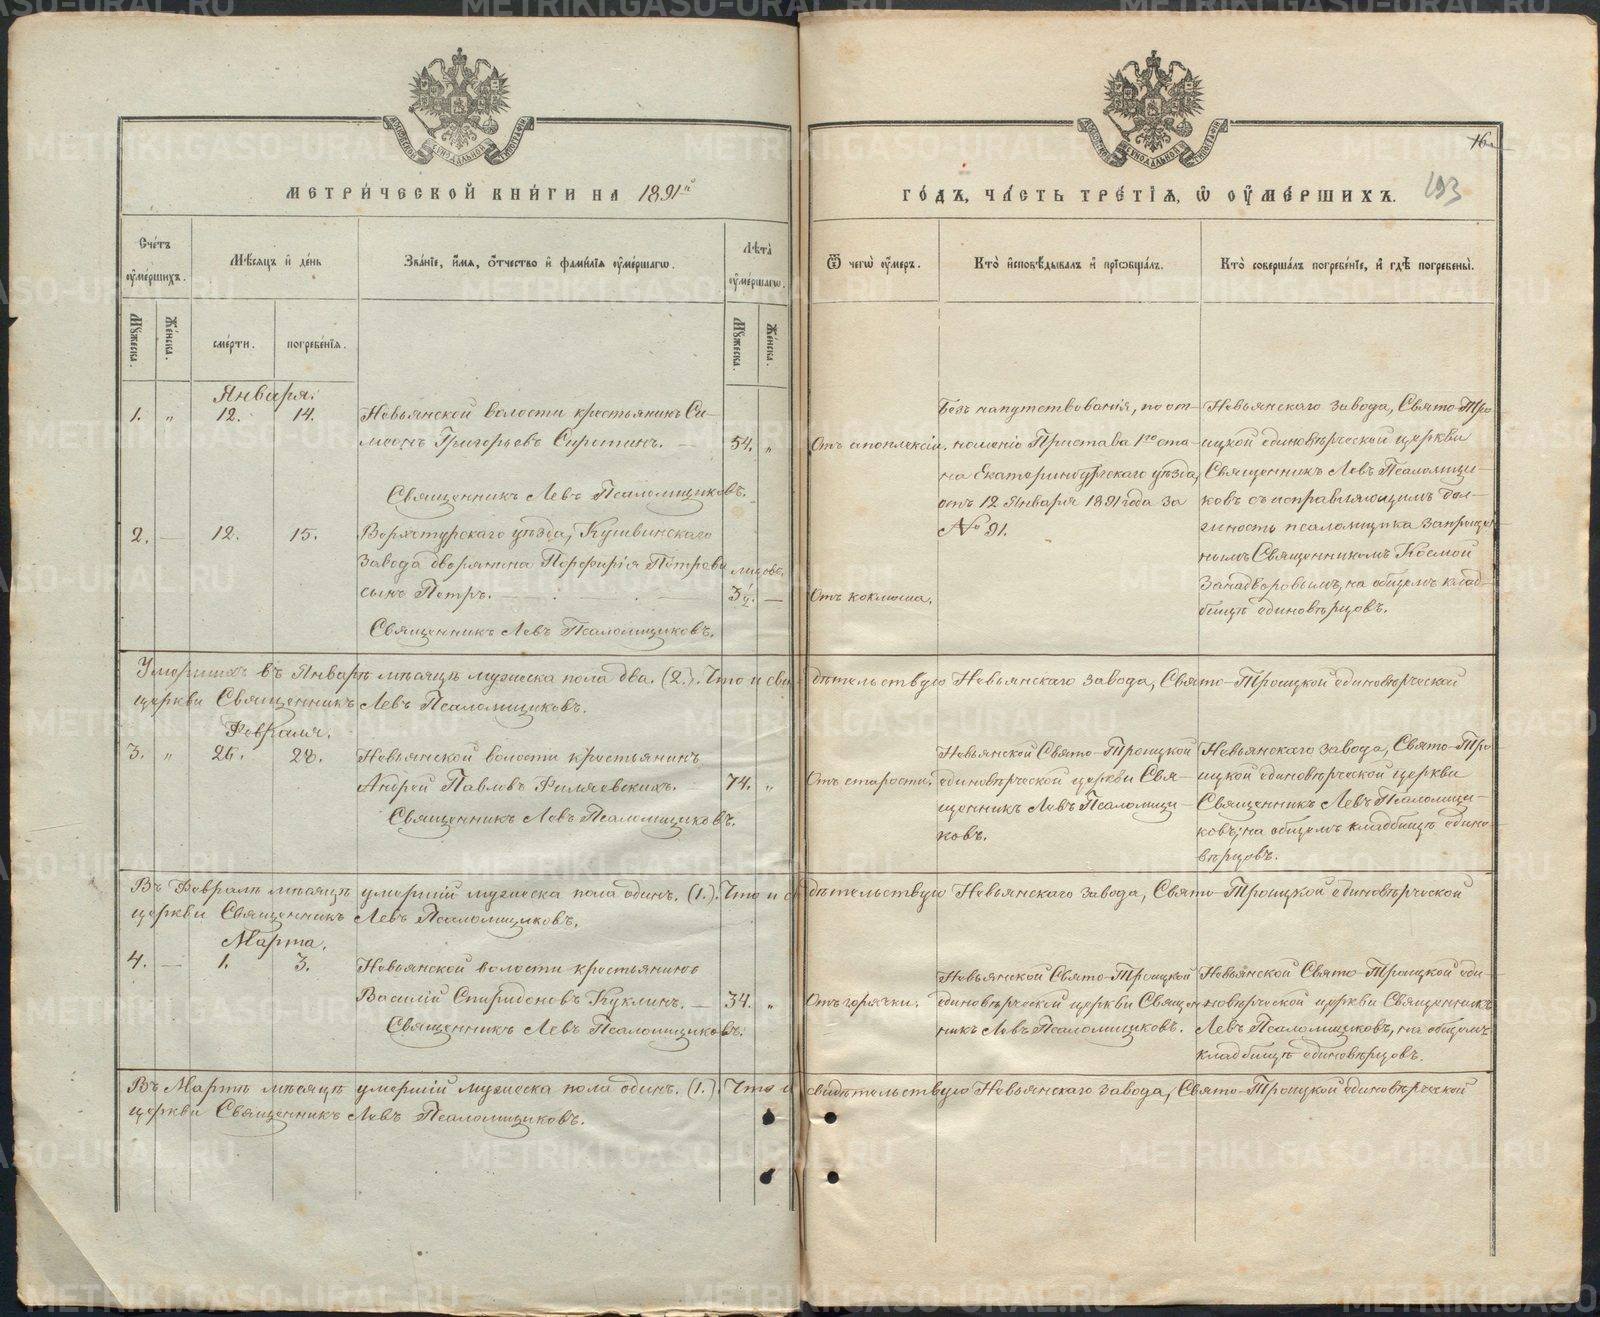 МЕТРИ́ЧЕСКОЙ КНИ́ГИ НА 1891й
ГО́ДЪ, ЧА́СТЬ ТРЕ́ТІѦ, Ѡ ОУ҆МЕ́РШИХЪ.
16
193
Сче́тъ оу҆ме́ршихъ.
Мѣ́сяцъ и де́нь
Зва́ніе, и҆́мя, ѻ҆́тчество и҆ фами́лія оу҆ме́ршагѡ.
Лѣта̀ оу҆ме́ршагѡ.
Ѿ чегѡ̀ оу҆́меръ.
Кто̀ и҆сповѣ́дывалъ и҆ пріѡбща́лъ.
Кто̀ соверша́лъ погребе́ніе, и҆ гдѣ̀ погребены̀.
Мꙋ́жеска.
Же́нска.
сме́рти.
погребе́нія.
Мꙋ́жеска.
Же́нска.
Января.
1. „ 12. 14. Невьянской волости крестьянинъ Си-
меонъ Григорьевъ Сиротинъ. — 54. „
Священникъ Левъ Псаломщиковъ.
Отъ апоплексіи.
Безъ напутствованія, по от-
ношенію Пристава 1го ста-
на Екатеринбургскаго уѣзда,
отъ 12 Января 1891 года за
№ 91.
Невьянскаго завода, Свято-Тро-
ицкой единовѣрческой церкви
Священникъ Левъ Псаломщи-
ковъ съ исправляющимъ дол-
жность псаломщика запрещен-
нымъ Священникомъ Космой
на общемъ клад-
бищѣ единовѣрцовъ.
2. — 12. 15. Верхотурскаго уѣзда, Кушвинскаго
завода дворянина Порфирія Петрова
сынъ Петръ. — мѣсяц. 3½. —
Священникъ Левъ Псаломщиковъ.
Отъ коклюша.
Умершихъ въ Январѣ мѣсяцѣ мужеска пола два. (2.). Что и свидѣтельствую Невьянскаго завода, Свято-Троицкой единовѣрческой
церкви Священникъ Левъ Псаломщиковъ.
Февраля.
3. „ 26. 28. Невьянской волости крестьянинъ
Андрей Павловъ — 74. „
Священникъ Левъ Псаломщиковъ.
Отъ старости.
Невьянской Свято-Троицкой
единовѣрческой церкви Свя-
щенникъ Левъ Псаломщи-
ковъ.
Невьянскаго завода, Свято-Тро-
ицкой единовѣрческой церкви
Священникъ Левъ Псаломщи-
ковъ, на общемъ кладбищѣ едино-
вѣрцовъ.
Въ Февралѣ мѣсяцѣ умершій мужеска пола одинъ. (1.). Что и свидѣтельствую Невьянскаго завода, Свято-Троицкой единовѣрческой
церкви Священникъ Левъ Псаломщиковъ.
Марта.
4. — 1. 3. Невьянской волости крестьянинъ
Василій Спиридоновъ Куклинъ. — 34. „
Священникъ Левъ Псаломщиковъ.
Отъ горячки.
Невьянской Свято-Троицкой
единовѣрческой церкви Священ-
никъ Левъ Псаломщиковъ.
Невьянской Свято-Троицкой еди-
новѣрческой церкви Священникъ
Левъ Псаломщиковъ, на общемъ
кладбищѣ единовѣрцовъ.
Въ Мартѣ мѣсяцѣ умершій мужеска пола одинъ. (1.). Что и свидѣтельствую Невьянскаго завода, Свято-Троицкой единовѣрческой
церкви Священникъ Левъ Псаломщиковъ.
METRIKI.GASO-URAL.RU